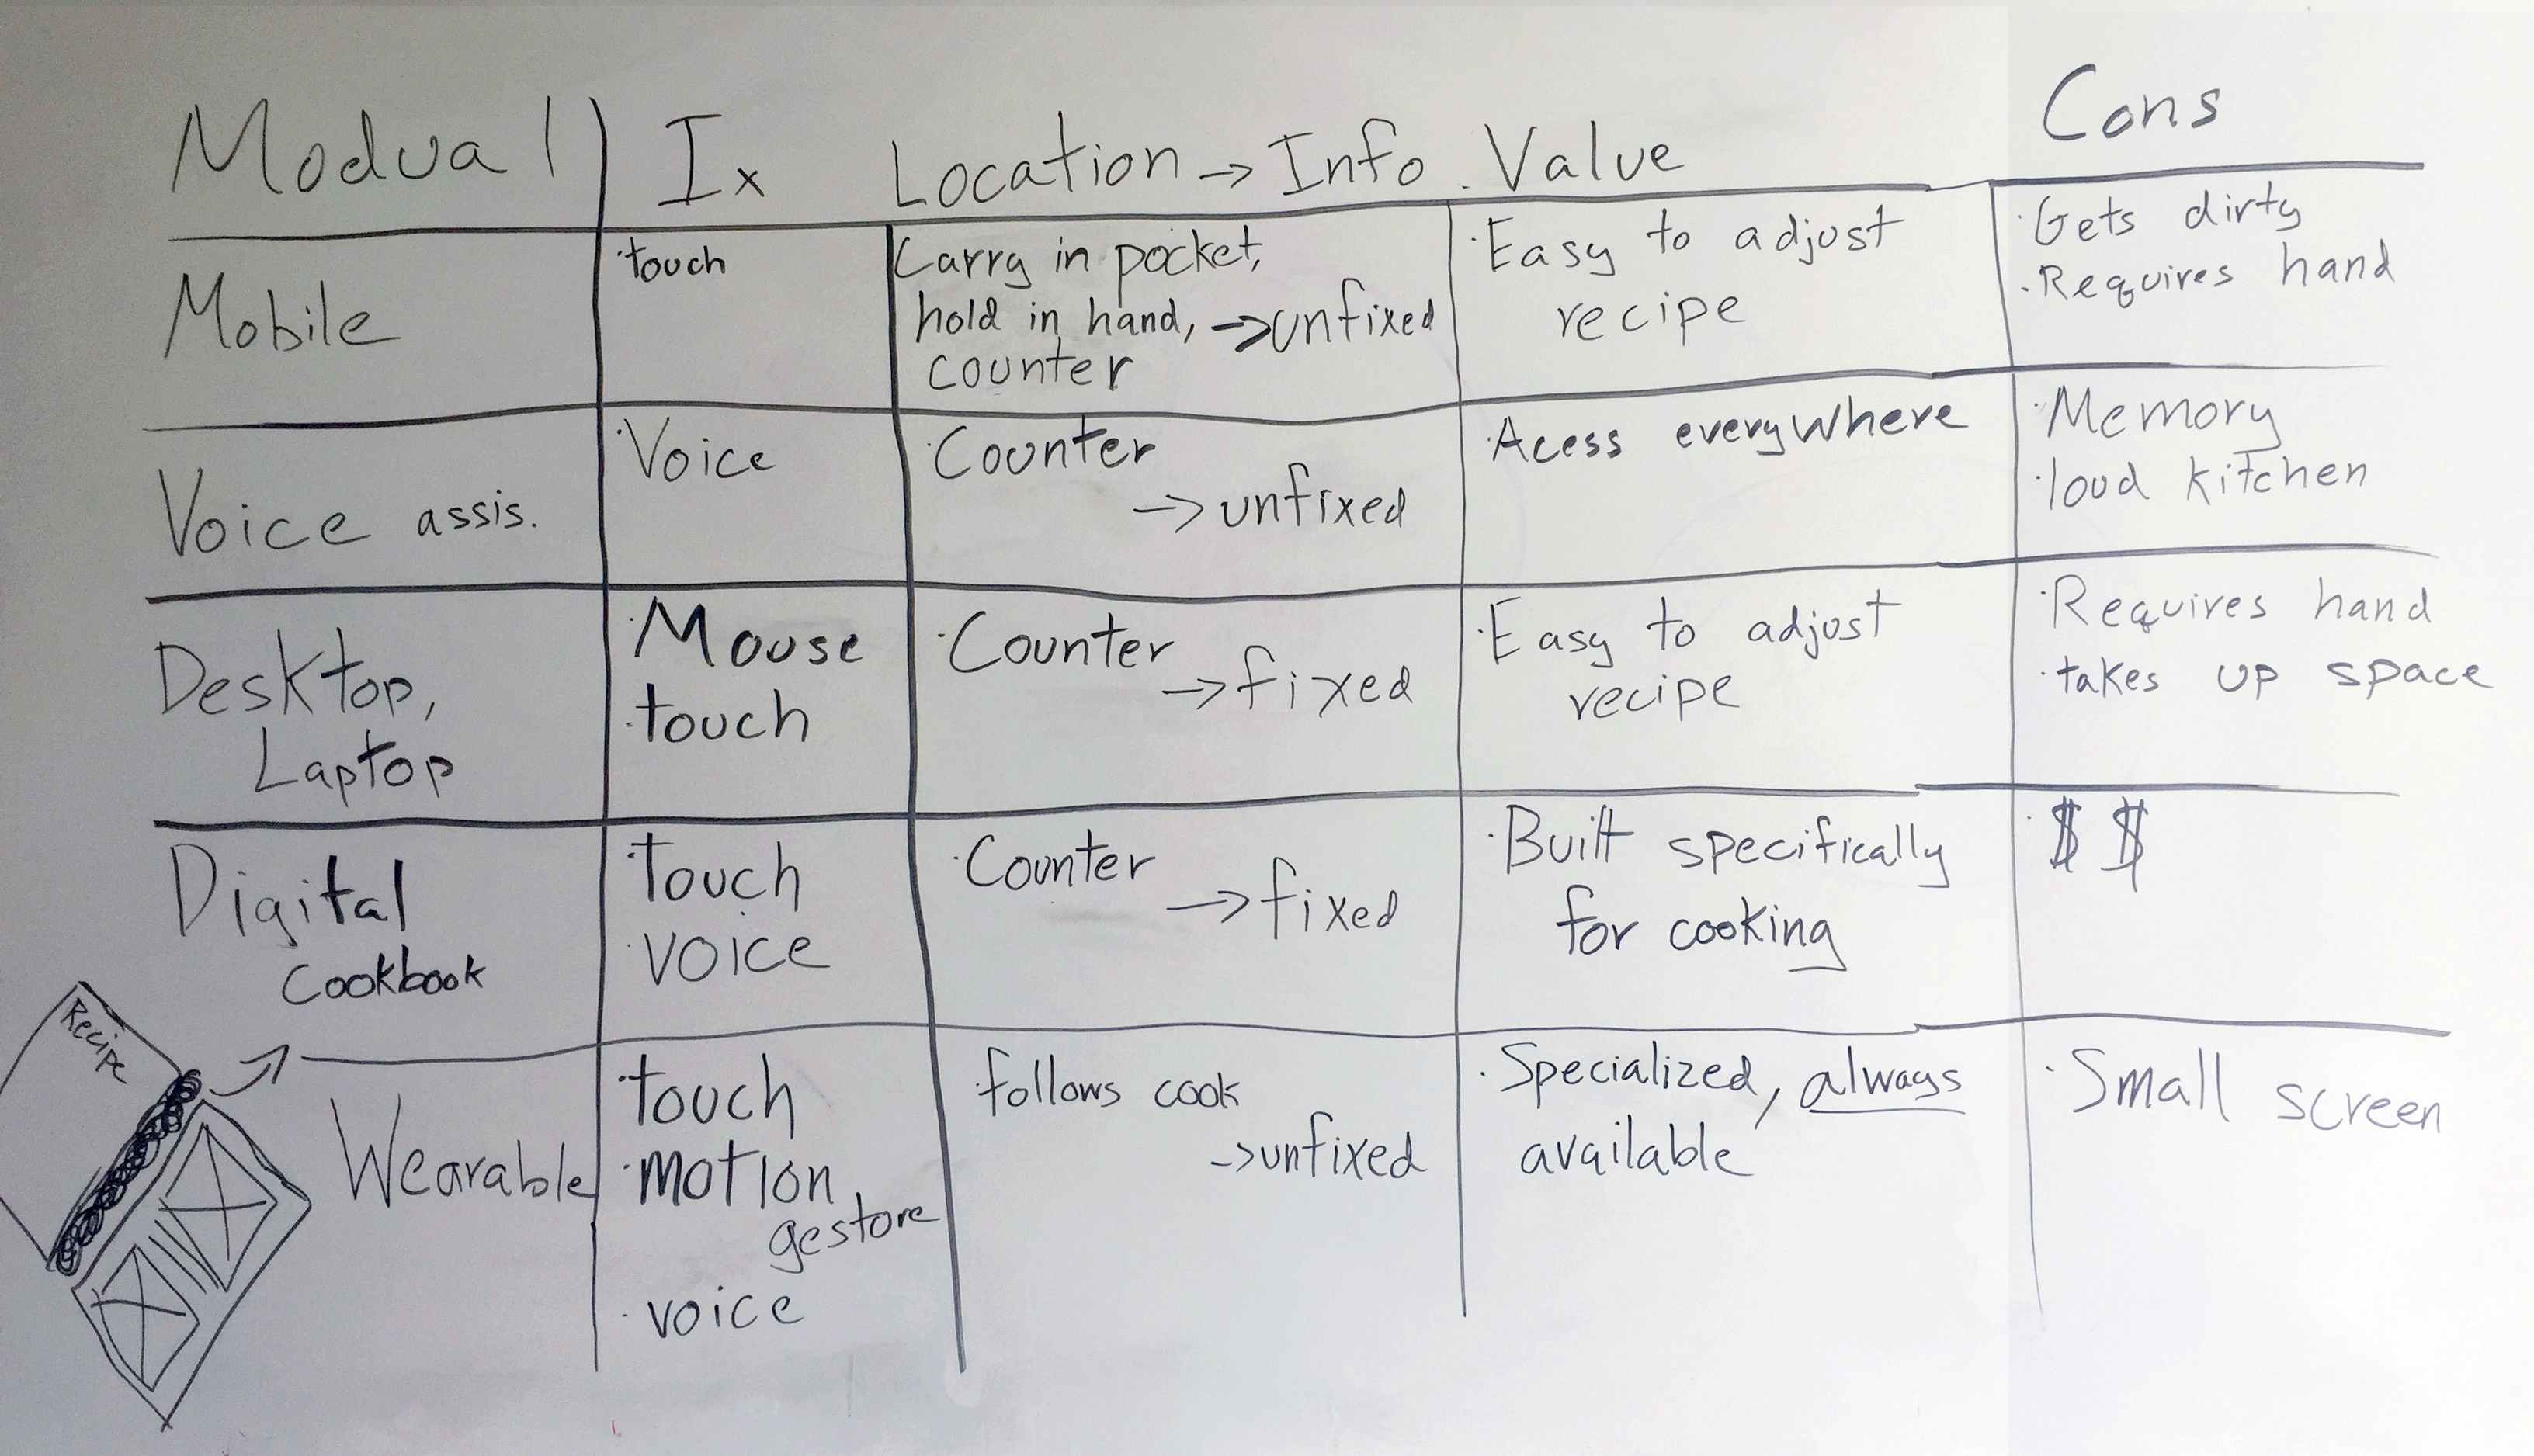 Modual Ix Location → Info Value Cons
Mobile
·touch
Carry in pocket,
hold in hand, → unfixed
counter
·Easy to adjust
recipe
·Gets dirty
·Requires hand
Voice assis.
·Voice
·Counter
→ unfixed
·Acess everywhere
·Memory
·loud kitchen
Desktop,
Laptop
·Mouse
·touch
·Counter
→ fixed
·Easy to adjust
recipe
·Requires hand
·takes up space
Digital
Cookbook
·Touch
·voice
·Counter
→ fixed
·Built specifically
for cooking
·$ $
Recipe
Wearable
·touch
·motion
gestore
·voice
·follows cook
→ unfixed
·Specialized, always
available
·Small screen